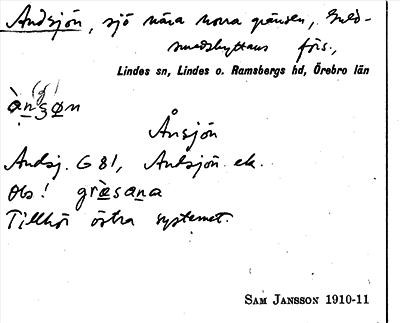 Andsjön, sjö nära norra gränsen, Guld-
smedshyttans förs.,
Lindes sn, Lindes o. Ramsbergs hd, Örebro län
Ånsjön
Andsj. G 81, Andsjön ek.
Obs! gräsana
Tillhör östra systemet.
SAM JANSSON 1910-11